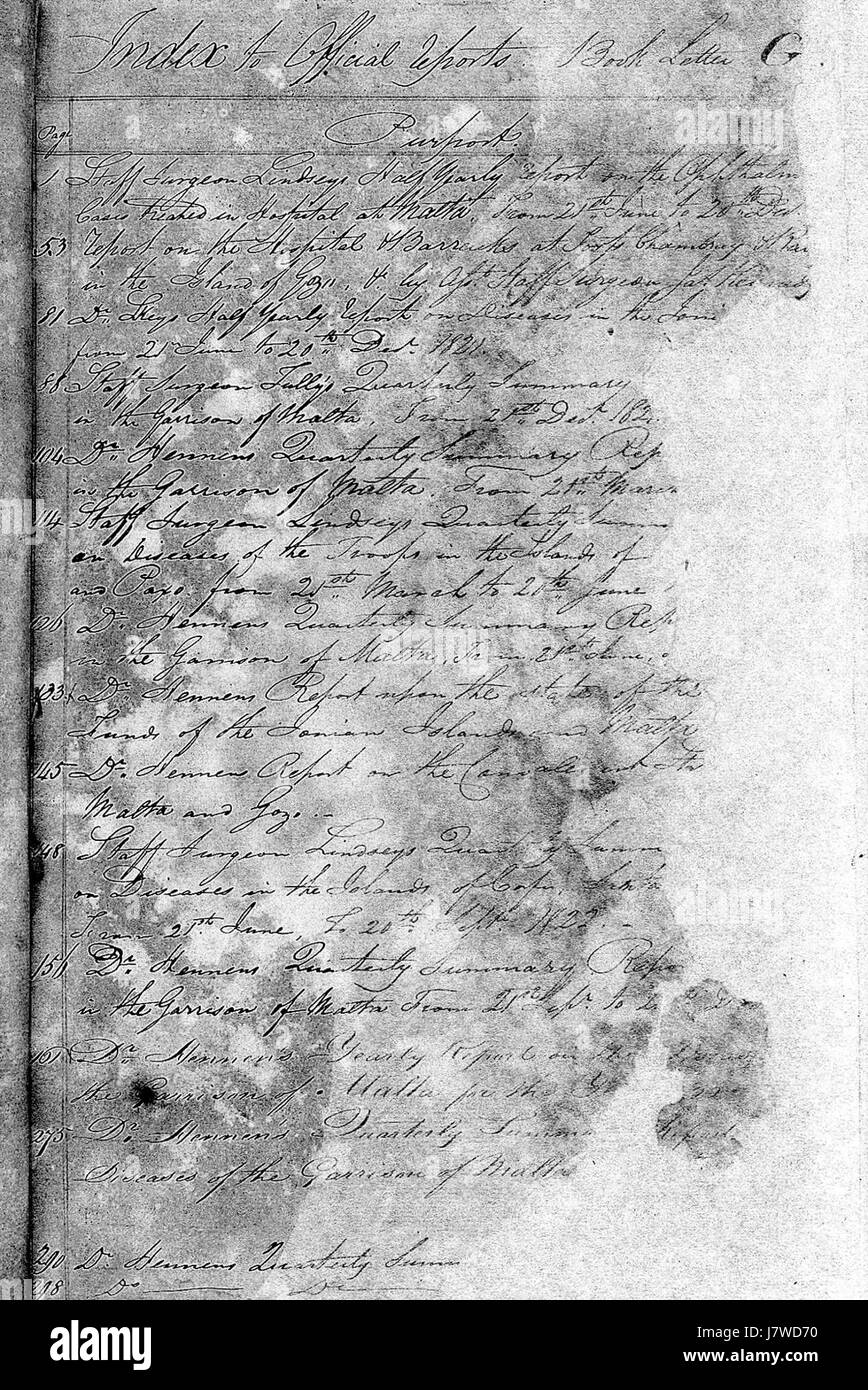 Index to Official Reports. Book Letter G.
Page
Purport.
1 Staff Surgeon Lindseys Half Yearly Report on the Ophthalm
Cases treated in Hospital at Malta, From 21st June to 20th Decr.
53 Report on the Hospital & Barracks at Chambray
in the Island of Gozo, & by Staff Surgeon
81 Dr. Half Yearly Report on Diseases in the Ioni
from 21st June to 20th Decr. 1821.
88 Staff Surgeon Tully's Quarterly Summary
in the Garrison of Malta, From 21st Decr. 182
104 Dr. Hennens Quarterly Summary Rep
in the Garrison of Malta, From 21st March
114 Staff Surgeon Lindseys Quarterly Summ
on Diseases of the Troops in the Islands of
and Paxo from 21st March to 20th June
126 Dr. Hennens Quarterly Summary Rep
in the Garrison of Malta, From 21st June,
133 Dr. Hennens Report upon the state of the
Funds of the Ionian Islands and Malta
145 Dr. Hennens Report on the
Malta and Gozo.-
148 Staff Surgeon Lindseys Quarterly Summ
on Diseases in the Islands of Corfu, Santa
From 21st June, to 20th Septr. 1822.-
151 Dr. Hennens Quarterly Summary Repo
in the Garrison of Malta From 21st Septr. to
161 Dr. Hennen's Yearly Report on the
the Garrison of Malta for the
275 Dr. Hennen's Quarterly Summa Report
Diseases of the Garrison of Malta
290 Dr. Hennens Quarterly Summ
298 Do Do
alamy
alamy
alamy
alamy
alamy
Image ID: J7WD70
www.alamy.com